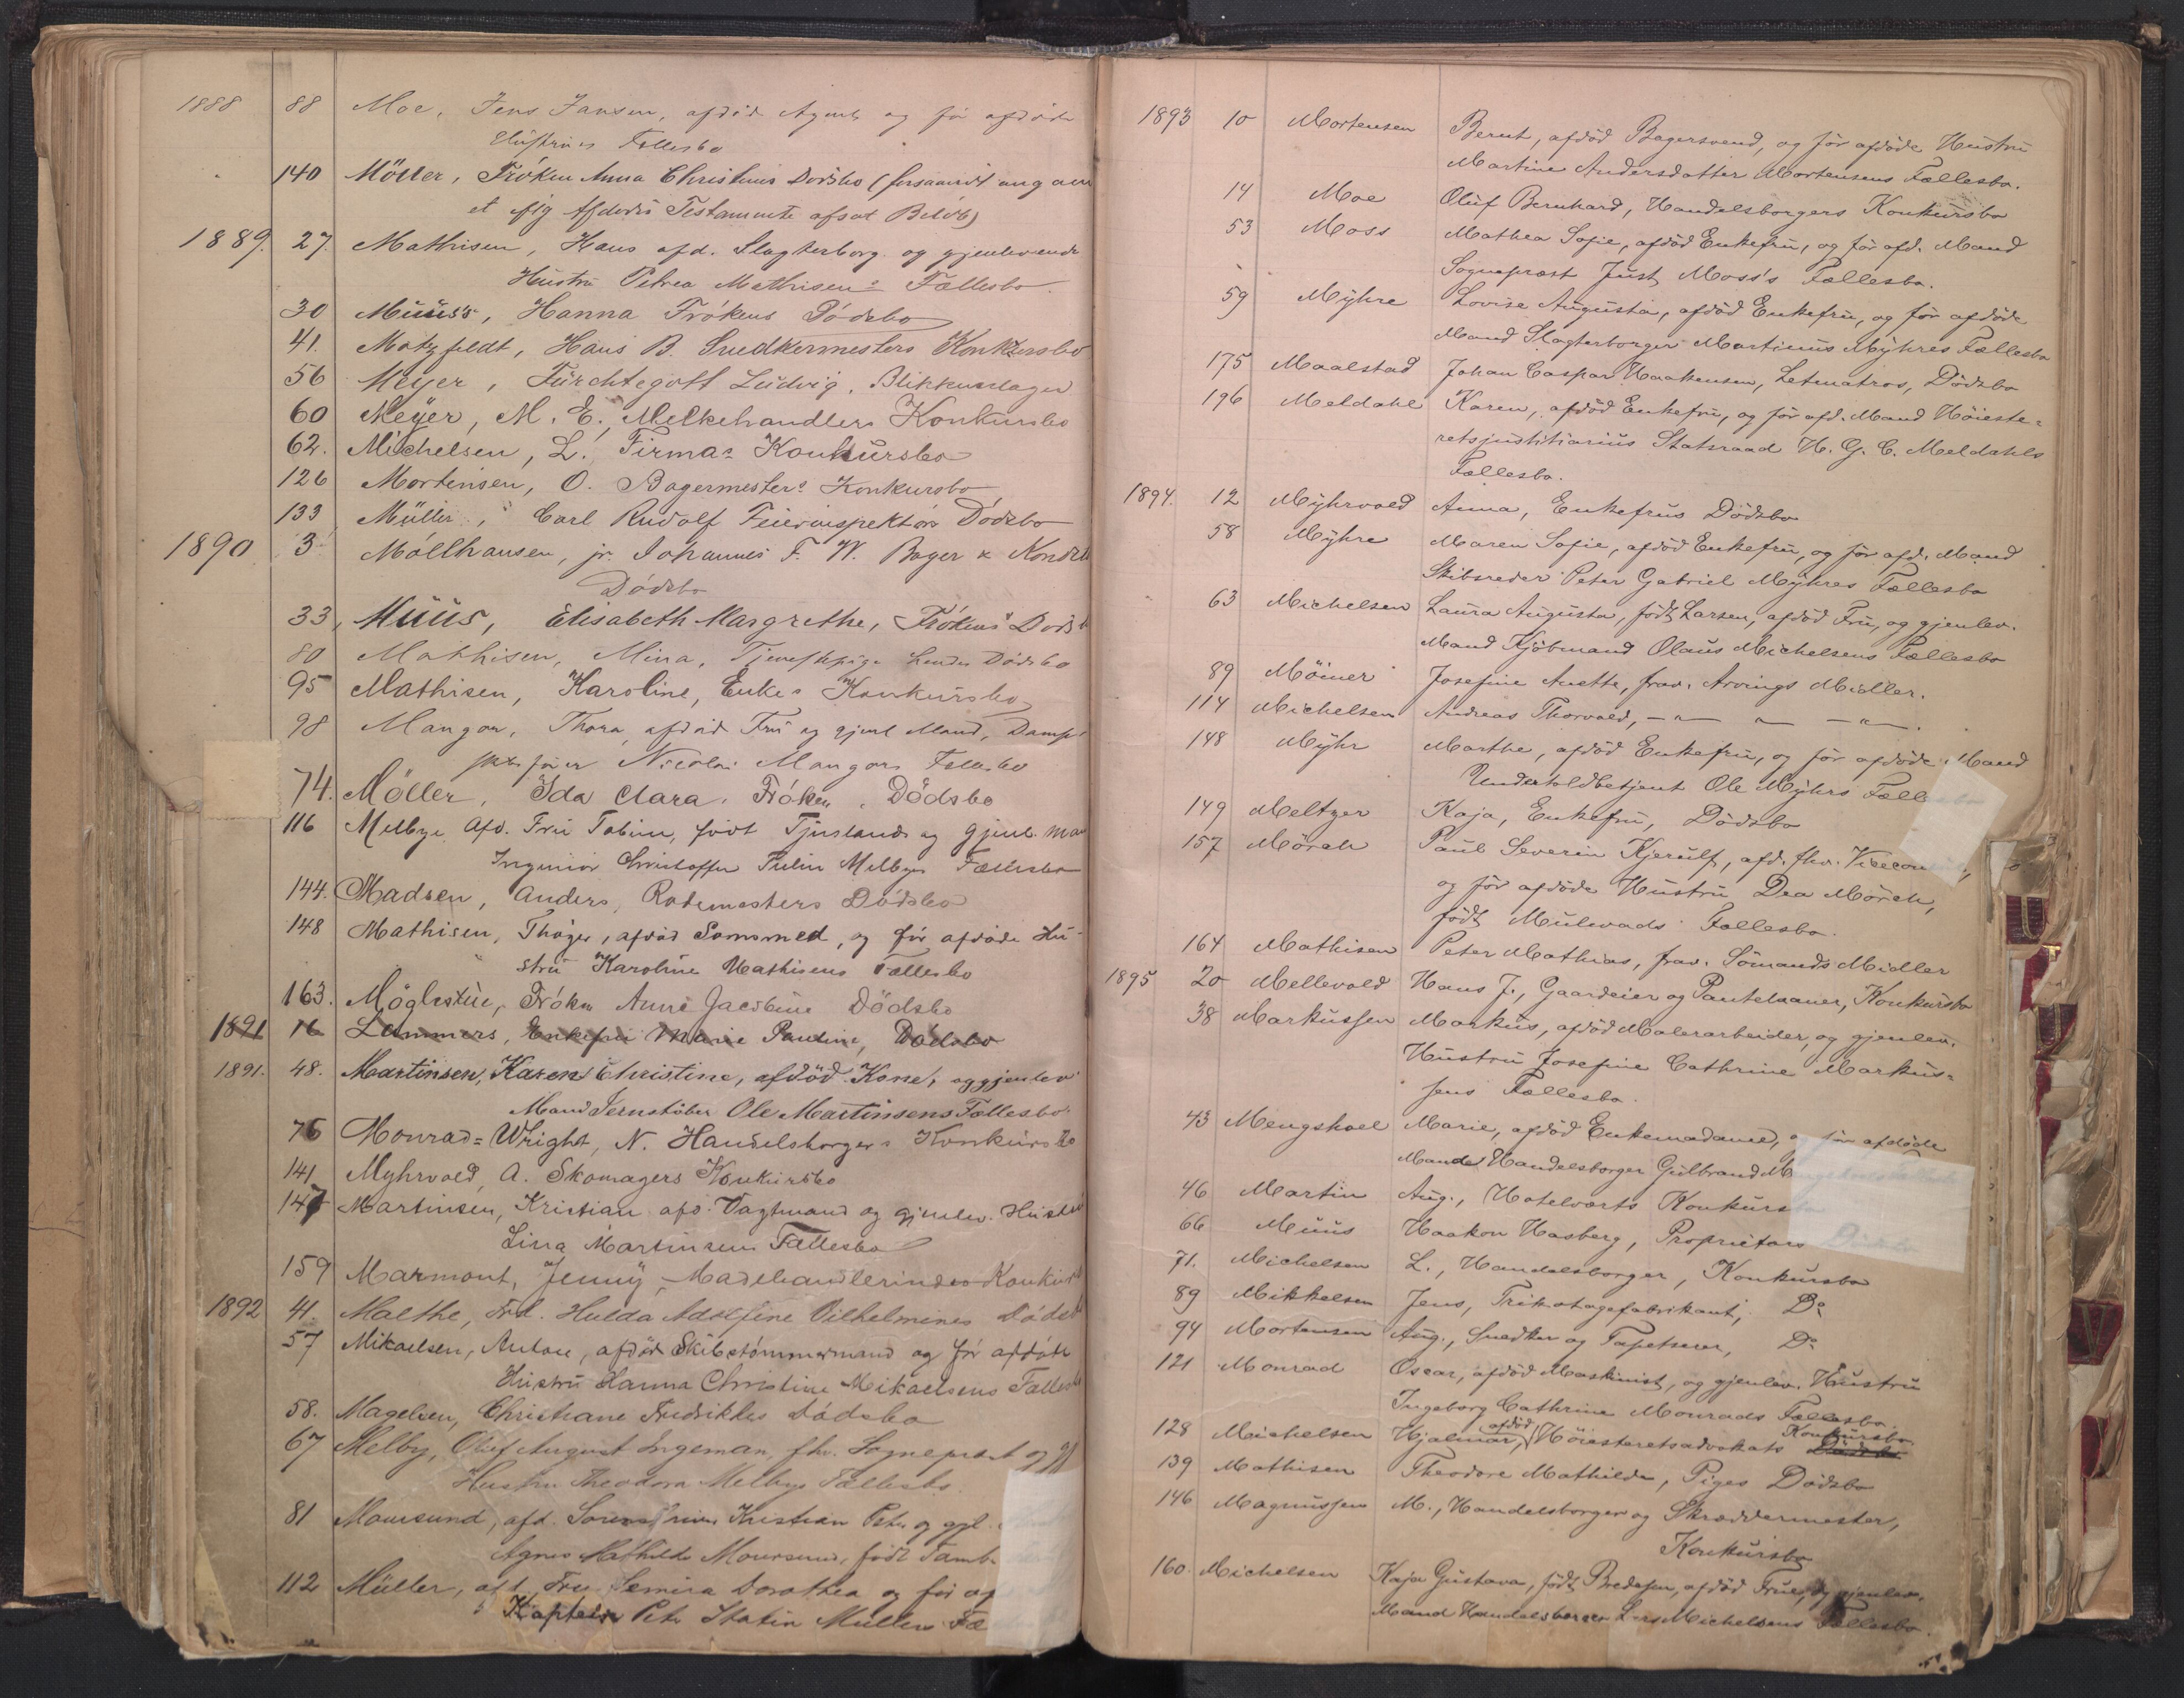 1888 88 Moe, Jens Jansen, afdöd Agent og för afdöde
Hustrues Fællesbo
140 Möller, Fröken Anna Christines Dödsbo (forsaavidt ang
et Testamente afsat Belöb)
1889. 27. Mathisen, Hans afd. Slagterborg. og gjenlevende
Hustru Petrea Mathisens Fællesbo.
30 Muus's, Hanna Frökens Dödsbo
41. Motzfeldt, Hans B. Snedkermesters Konkursbo
56 Meyer, Fürchtegott Ludvig, Blikkenslager
60 Meyer, M. E., Melkehandlers Konkursbo
62. Michelsen, L. Firmas Konkursbo
126 Mortensen, O. Bagermesters Konkursbo
133 Müller, Carl Rudolf Feierinspektörs Dödsbo
1890 3 Möllhausen, jr. Johannes F. W. Bager & Kondit
Dödsbo
33, Muus, Elisabeth Margrethe, Frökens Dödsb
80 Mathisen, Mina, Tjenestepige hendes Dödsbo
95 Mathisen, Karoline, Enkes Konkursbo
98 Mangor, Thora, afdöd Fru og gjenl Mand, Damp-
skibsförer Nicolai Mangors Fællesbo
74. Möller, Ida Clara, Fröken, Dödsbo
116 Melbye, Afd. Fru födt Tjuslands og gjenl. man
Ingeniör Christoffer Melbyes Fællesbo
144. Madsen, Anders, Rodemesters Dödsbo
148 Mathisen, Thöger, afdöd Sömsmed, og för afdöde Hu-
stru Karoline Mathisens Fællesbo
163. Möglestue, Fröken Anne Jacobine Dödsbo
1891 16 Lammers, Enkefru Marie Pauline, Dödsbo
1891. 48. Martinsen, Karen Christine, afdöd Kone, og gjenlev
Mand Jernstöber Ole Martinsens Fællesbo.
76 Monrad=Wright, N. Handelsborgers Konkursbo
141 Myhrvold, A. Skomagers Konkursbo
147 Martinsen, Kristian afd. Vagtmand og gjenlev. Hustru
Lina Martinsens Fællesbo
159 Marmont, Jenny, Modehandlerindes Konkurs
1892 41. Malthe, Frk. Hulda Adolfine Vilhelmines Dödsb
57 Mikaelsen, Anton, afdöd Skibstömmermand og för afdöde
Hustru Hanna Christine Mikaelsens Fælles
58. Magelsen, Christiane Fredrikkes Dödsbo
67 Melby, Oluf August Ingeman, fhv. Sogneprest og gl
Hustru Theodora Melbys Fællesbo.
81 Moursund, afd. Kristian Peter og gjl.
Agnes Mathilde Moursund, födt Lamb
112 Müller, afd. Fru Semina Dorothea og för af
Kaptein Peter Statin Müllers Fæ
1893 10 Mortensen Bernt, afdöd Bagersvend, og för afdöde Hustru
Martine Andersdatter Mortensens Fællesbo.
14 Moe Oluf Bernhard, Handelsborgers Konkursbo
53 Moss Mathea Sofie, afdöd Enkefru, og för afd. Mand
Sogneprest Just Moss's Fællesbo.
59 Myhre Lovise Augusta, afdöd Enkefru, og för afdöde
Mand Slagterborger Martinus Myhres Fællesbo
175 Maalstad Johan Caspar Haakensen, Letmatros, Dödsbo
196 Meldahl Karen, afdöd Enkefru, og för afd. Mand Höieste-
retsjustitiarius Statsraad H. G. C. Meldahls
Fællesbo.
1894. 12 Myhrvold Anna, Enkefrus Dödsbo
58 Myhre Maren Sofie, afdöd Enkefru, og för afd. Mand
Skibsreder Peter Gabriel Myhres Fællesbo
63 Michelsen Laura Augusta, födt Larsen, afdöd Fru, og gjenlev.
Mand Kjöbmand Olaus Michelsens Fællesbo
89 Möiner Josefine Anette, frav. Arvings Midler.
114 Michelsen Andreas Thorvald, —"— " —"—.
148 Myhr Marthe, afdöd Enkefru, og för afdöde Mand
Undertoldbetjent Ole Myhrs Fælle
149 Meltzer Kaja, Enkefru, Dödsbo
157 Mörch Paul Severin Kjerulf, afd. fhv. Vicecon
og för afdöde Hustru Dea Mörch,
födt Mulvads Fællesbo.
164 Mathisen Peter Mathias, frav. Sömands Midler
1895 20 Mellevold Hans J., Gaardeier og Pantelaaner, Konkursbo
38 Markussen Markus, afdöd Malerarbeider, og gjenlev.
Hustru Josefine Cathrine Markus-
sens Fællesbo.
43 Mengshoel Marie, afdöd Enkemadame, og för afdöde
Mands Handelsborger Gulbrand M
46 Martin Aug., Hotelværts Konkurs
66 Muus Haakon Hasberg, Proprietærs D
71. Michelsen L., Handelsborger, Konkursbo
89 Mikkelsen Jens, Trikotagefabrikant, Do
94 Mortensen Aug., Snedker og Tapetserer, Do
121 Monrad Oscar, afdöd Maskinist, og gjenlev. Hustru
Ingeborg Cathrine Monrads Fællesbo.
128 Michelsen Hjalmar, afdöd Höiesteretsadvokats Dödsbo Konkursbo
139 Mathisen Theodore Mathilde, Piges Dödsbo
146 Magnussen M., Handelsborger og Skræddermester,
Konkursbo
160. Michelsen Kaja Gustava, födt Bredesen, afdöd Frue, og gjenlev.
Mand Handelsborger Lars Michelsens Fællesbo.